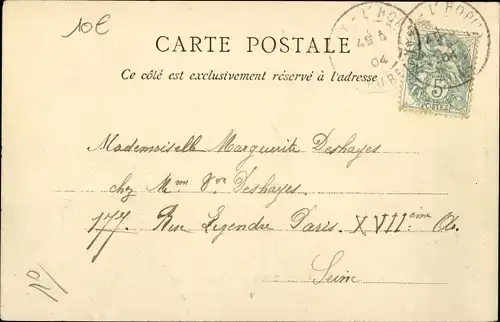 10€
CARTE POSTALE
Ce côté est exclusivement réservé à l'adresse
L'HO
04
5
Mademoiselle Marguerite Deshayes
chez Mme Vve Deshayes
177. Rue Legendre Paris. XVIIème A.
Seine
10